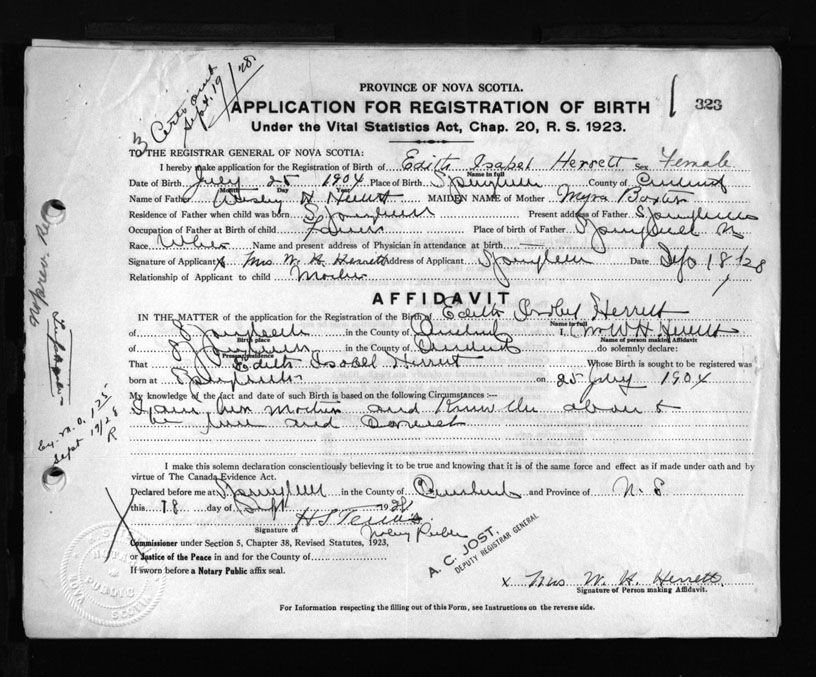 3 Certs out
Sept. 19/28
PROVINCE OF NOVA SCOTIA.
APPLICATION FOR REGISTRATION OF BIRTH
323
Under the Vital Statistics Act, Chap. 20, R. S. 1923.
TO THE REGISTRAR GENERAL OF NOVA SCOTIA:
I hereby make application for the Registration of Birth of Edith Isabel Herrett Sex Female
Name in full
Date of Birth July 25 1904 Place of Birth Springhill County of Cumberland
Month Day Year
Name of Father Wesley H Herrett MAIDEN NAME of Mother Myra Baxter
Residence of Father when child was born Springhill Present address of Father Springhill
Occupation of Father at Birth of child Farmer Place of birth of Father Springhill N
Race White Name and present address of Physician in attendance at birth
Signature of Applicant x Mrs W. H. Herrett Address of Applicant Springhill Date Sep 18/28
Relationship of Applicant to child Mother
AFFIDAVIT
IN THE MATTER of the application for the Registration of the Birth of Edith Isobel Herrett
Name in full
of Springhill in the County of Cumberland I, Mrs W H Herrett
Birth place Name of person making Affidavit
of Springhill in the County of Cumberland do solemnly declare:
Present residence
That Edith Isobel Herrett Whose Birth is sought to be registered was
born at Springhill on 25 July 1904
My knowledge of the fact and date of such Birth is based on the following Circumstances :—
I am her mother and know the above to
be true and correct
I make this solemn declaration conscientiously believing it to be true and knowing that it is of the same force and effect as if made under oath and by
virtue of The Canada Evidence Act.
Declared before me at Springhill in the County of Cumberland and Province of N. S
this 18 day of Sept 1928
Signature of
Notary Public
Commissioner under Section 5, Chapter 38, Revised Statutes, 1923,
or Justice of the Peace in and for the County of
If sworn before a Notary Public affix seal.
A. C. JOST,
DEPUTY REGISTRAR GENERAL
x Mrs W. H. Herrett
Signature of Person making Affidavit.
For Information respecting the filling out of this Form, see Instructions on the reverse side.
No prev. Re
Ex. M. O. 125
Sept 19/28
R
NOTARY PUBLIC
NOVA SCOTIA